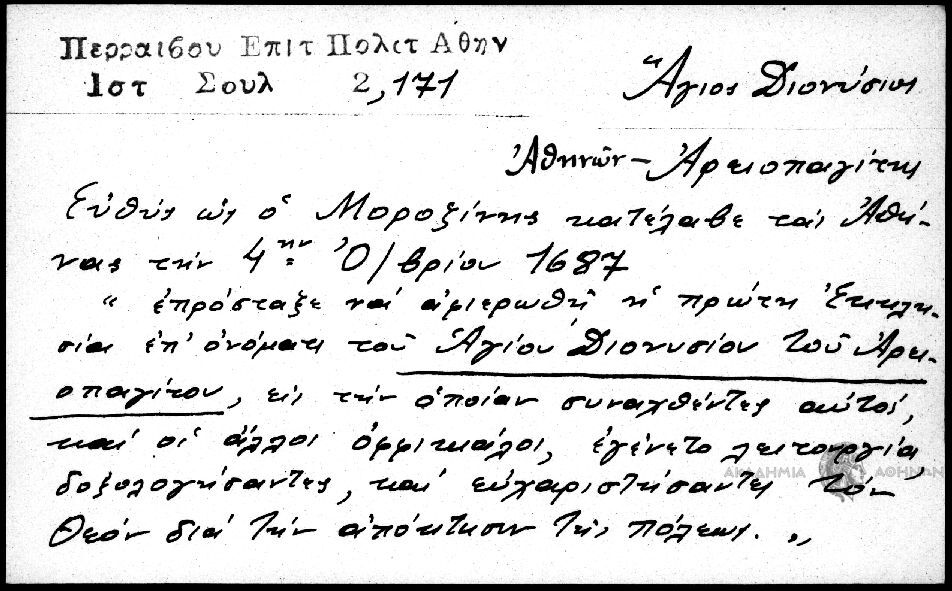 Περραιβου Επιτ Πολετ Αθην
Ιστ Σουλ 2,171
Ἅγιος Διονύσιος
Ἀθηνῶν - Ἀρειοπαγίτης
Εὐθύς ὡς ὁ Μοροζίνης κατέλαβε τάς Ἀθή-
νας τήν 4ην Ὀ/βρίου 1687
“ ἐπρόσταξε νά ἀφιερωθῇ ἡ πρώτη Ἐκκλη-
σία ἐπ' ὀνόματι τοῦ Ἁγίου Διονυσίου τοῦ Ἀρει-
οπαγίτου, εἰς τήν ὁποίαν συναχθέντες αὐτοί,
καί οἱ ἄλλοι ὀφφικιάλοι, ἐγένετο λειτουργία,
δοξολογήσαντες, καί εὐχαριστήσαντες τόν
Θεόν διά τήν ἀπόκτησιν τῆς πόλεως. „
ΑΚΑΔΗΜΙΑ ΑΘΗΝΩΝ